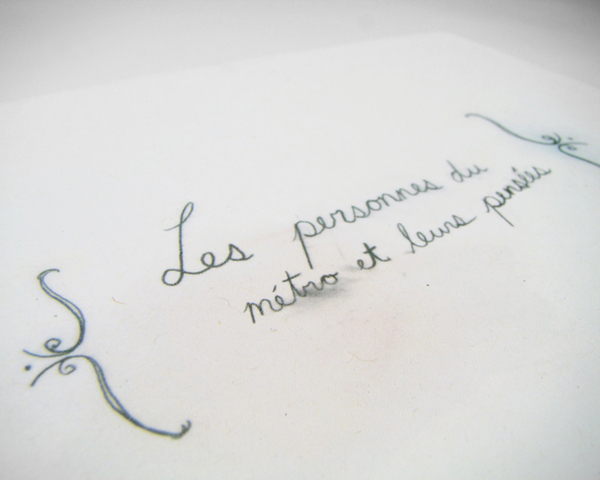 Les personnes du
métro et leurs pensées